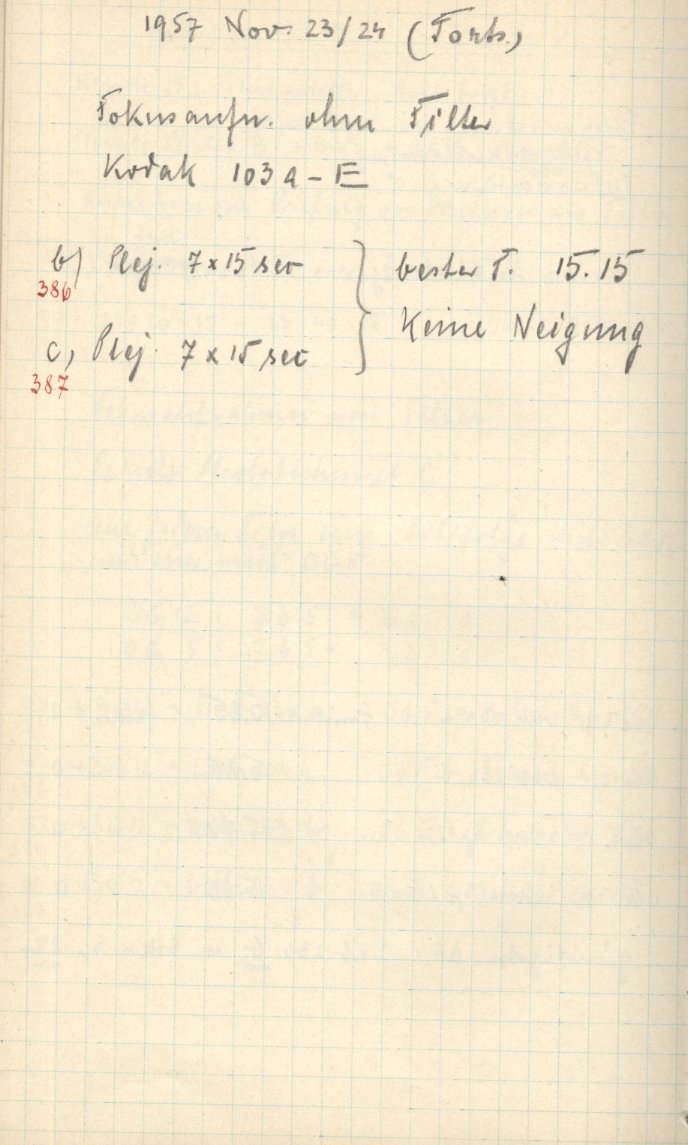 1957 Nov. 23/24 (Forts.)
Fokusaufn. ohne Filter
Kodak 103a-E
b) Plej. 7x15 sec
386
c) Plej. 7x15 sec
387
bester F. 15.15
Keine Neigung